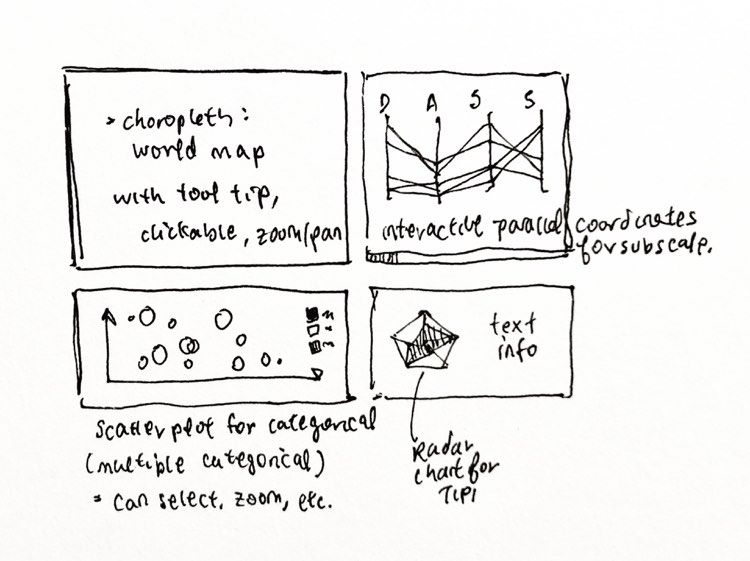 > choropleth:
world map
with tool tip,
clickable, zoom/pan
D A S S
interactive parallel coordinates
for subscale.
Scatterplot for categorical
(multiple categorical)
* can select, zoom, etc.
text
info
Radar
chart for
TIPI